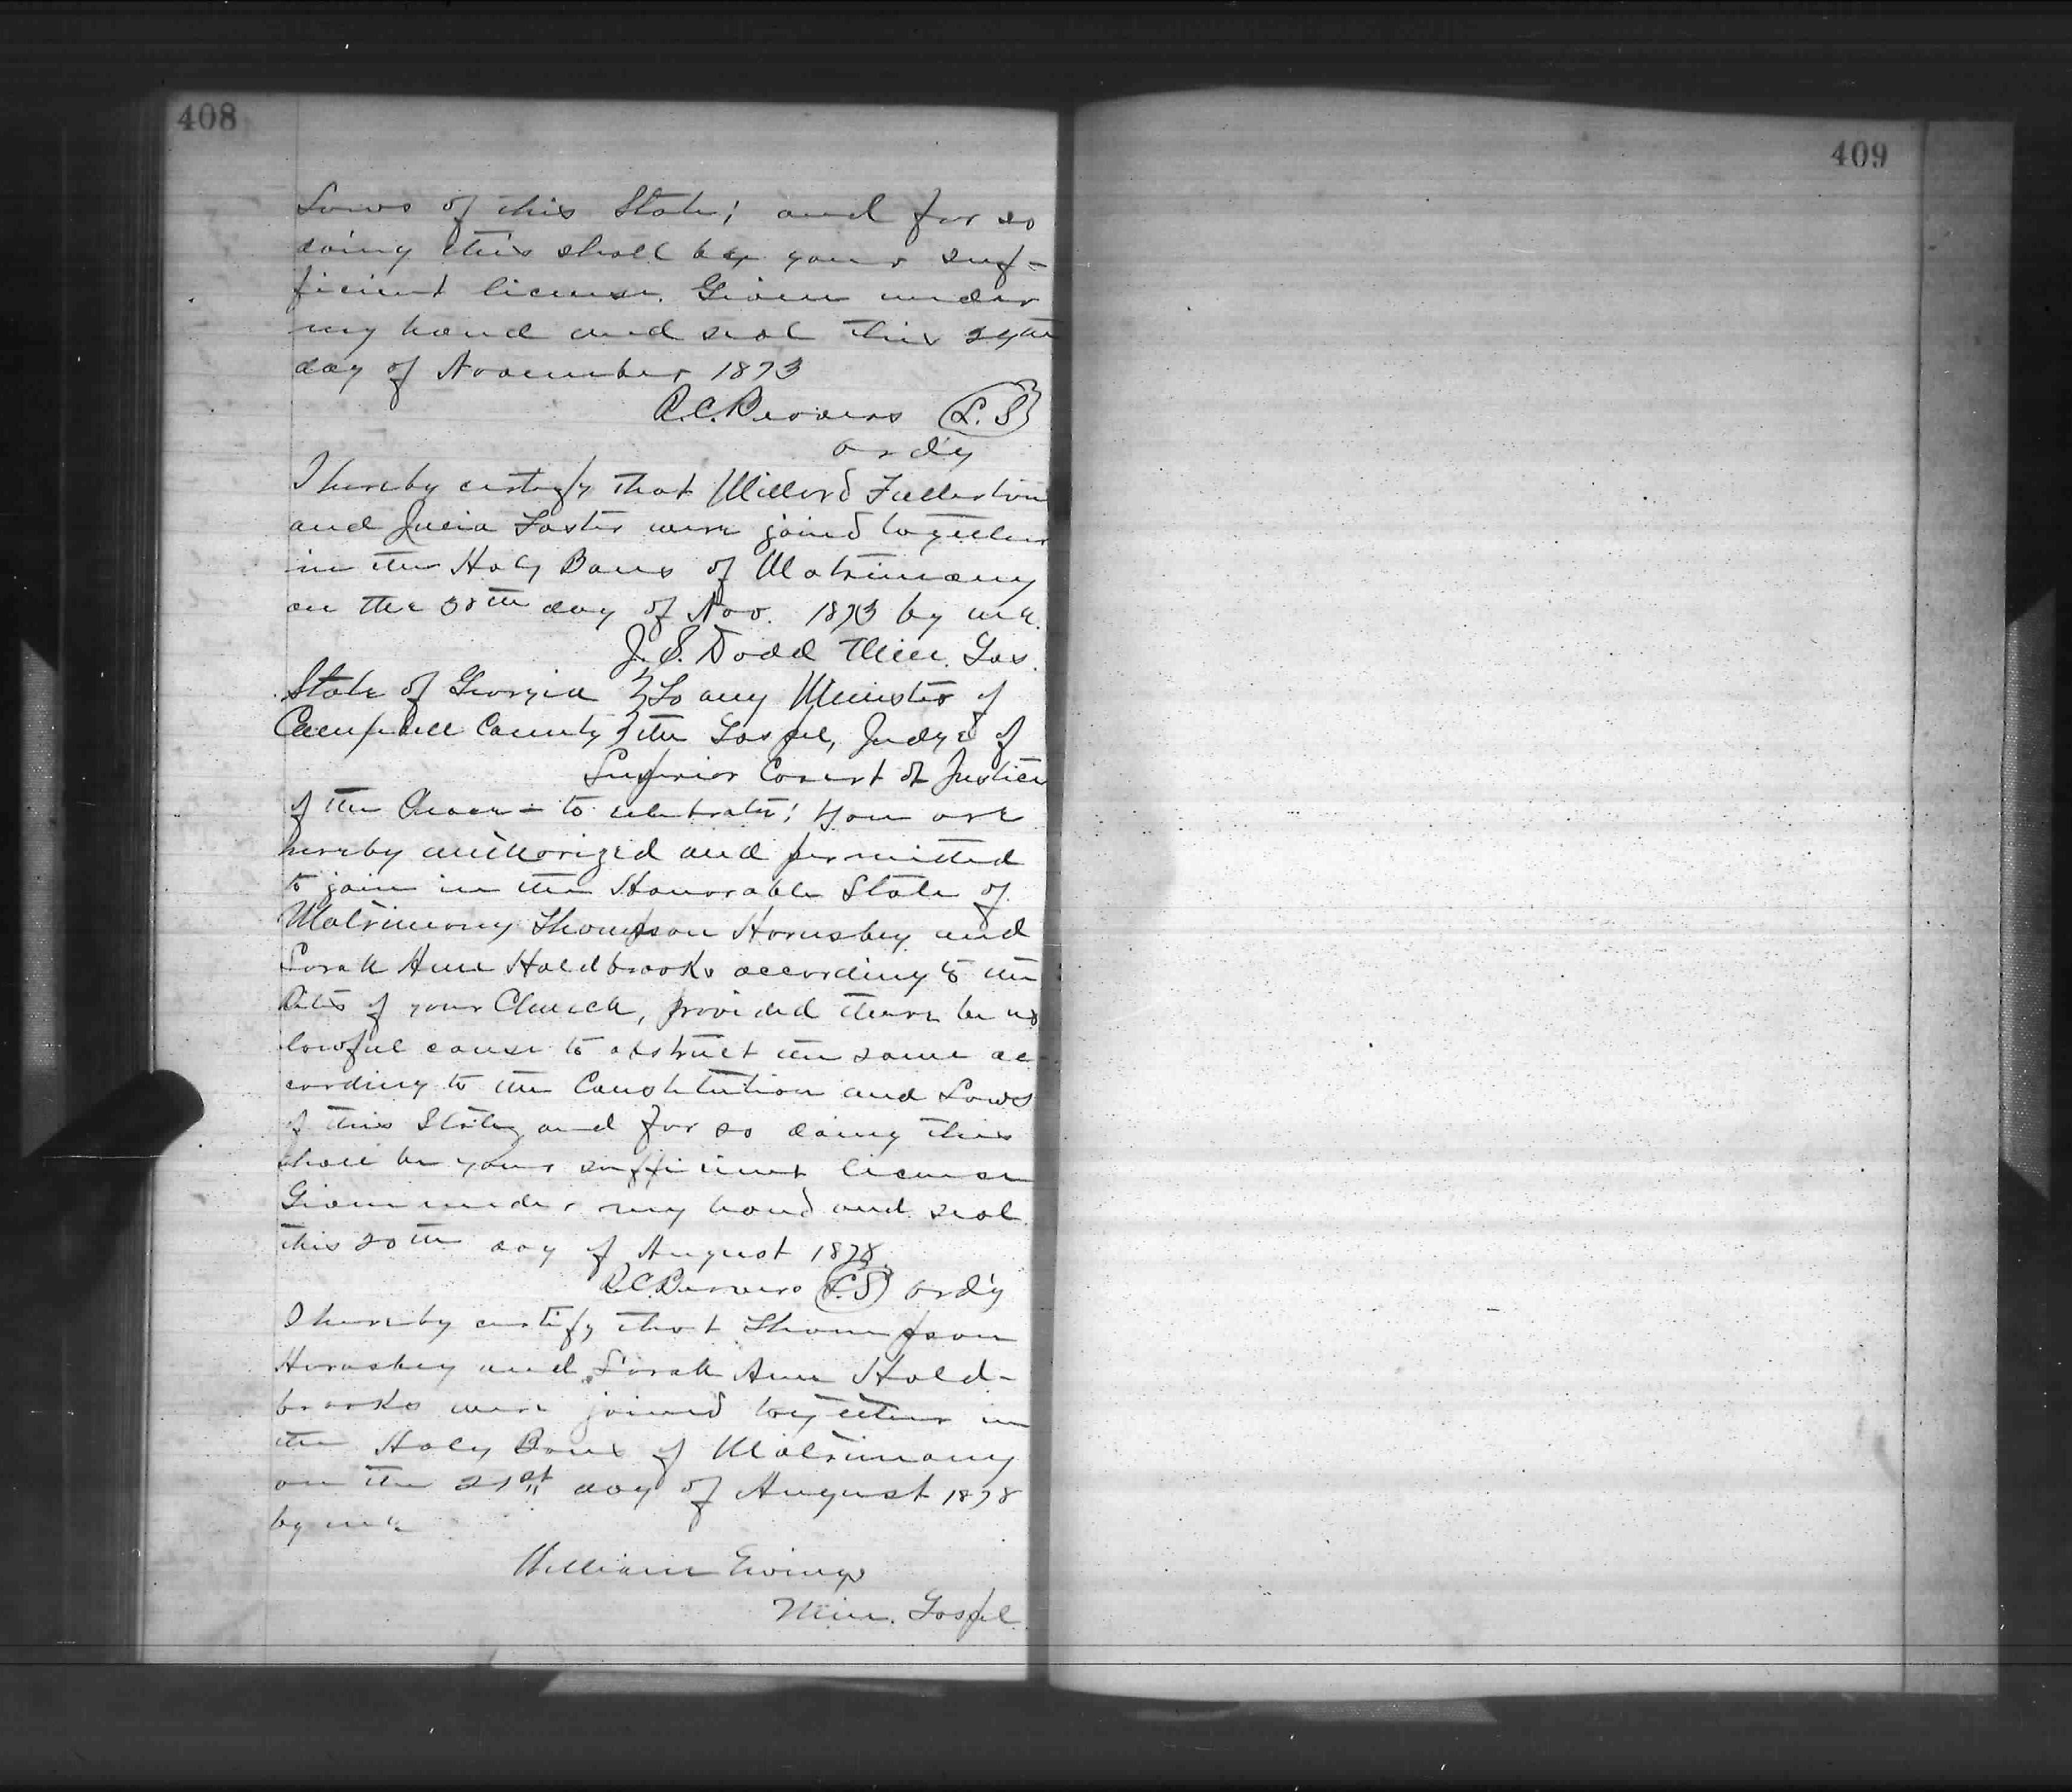 408
Laws of this State; and for so
doing this shall be your suf-
ficient license. Given under
my hand and seal this 29th
day of November 1873
R.C. Beavers (L.S)
ordy
I hereby certify that Willord Fullerton
and Julia Laster were joined together
in the Holy Bans of Matrimony
on the 30th day of Nov. 1873 by me.
J. S. Dodd Min. Gos.
State of Georgia } To any Minister of
Campbell County } the Gospel, Judge of
Superior Court or Justice
of the Peace - to celebrate; You are
hereby authorized and permitted
to join in the Honorable State of
Matrimony Thompson Hornsbey and
Sarah Ann Holdbrooks according to the
Rites of your Church, provided there be no
lawful cause to obstruct the same ac-
cording to the Constitution and Laws
of this State, and for so doing this
shall be your sufficient license
Given under my hand and seal
this 20th day of August 1878.
R.C. Beavers (L.S) ordy
I hereby certify that Thompson
Hornsbey and Sarah Ann Hold-
brooks were joined together in
the Holy Bans of Matrimony
on the 21st day of August 1878
by me
William Ewings
Min. Gospel.
409